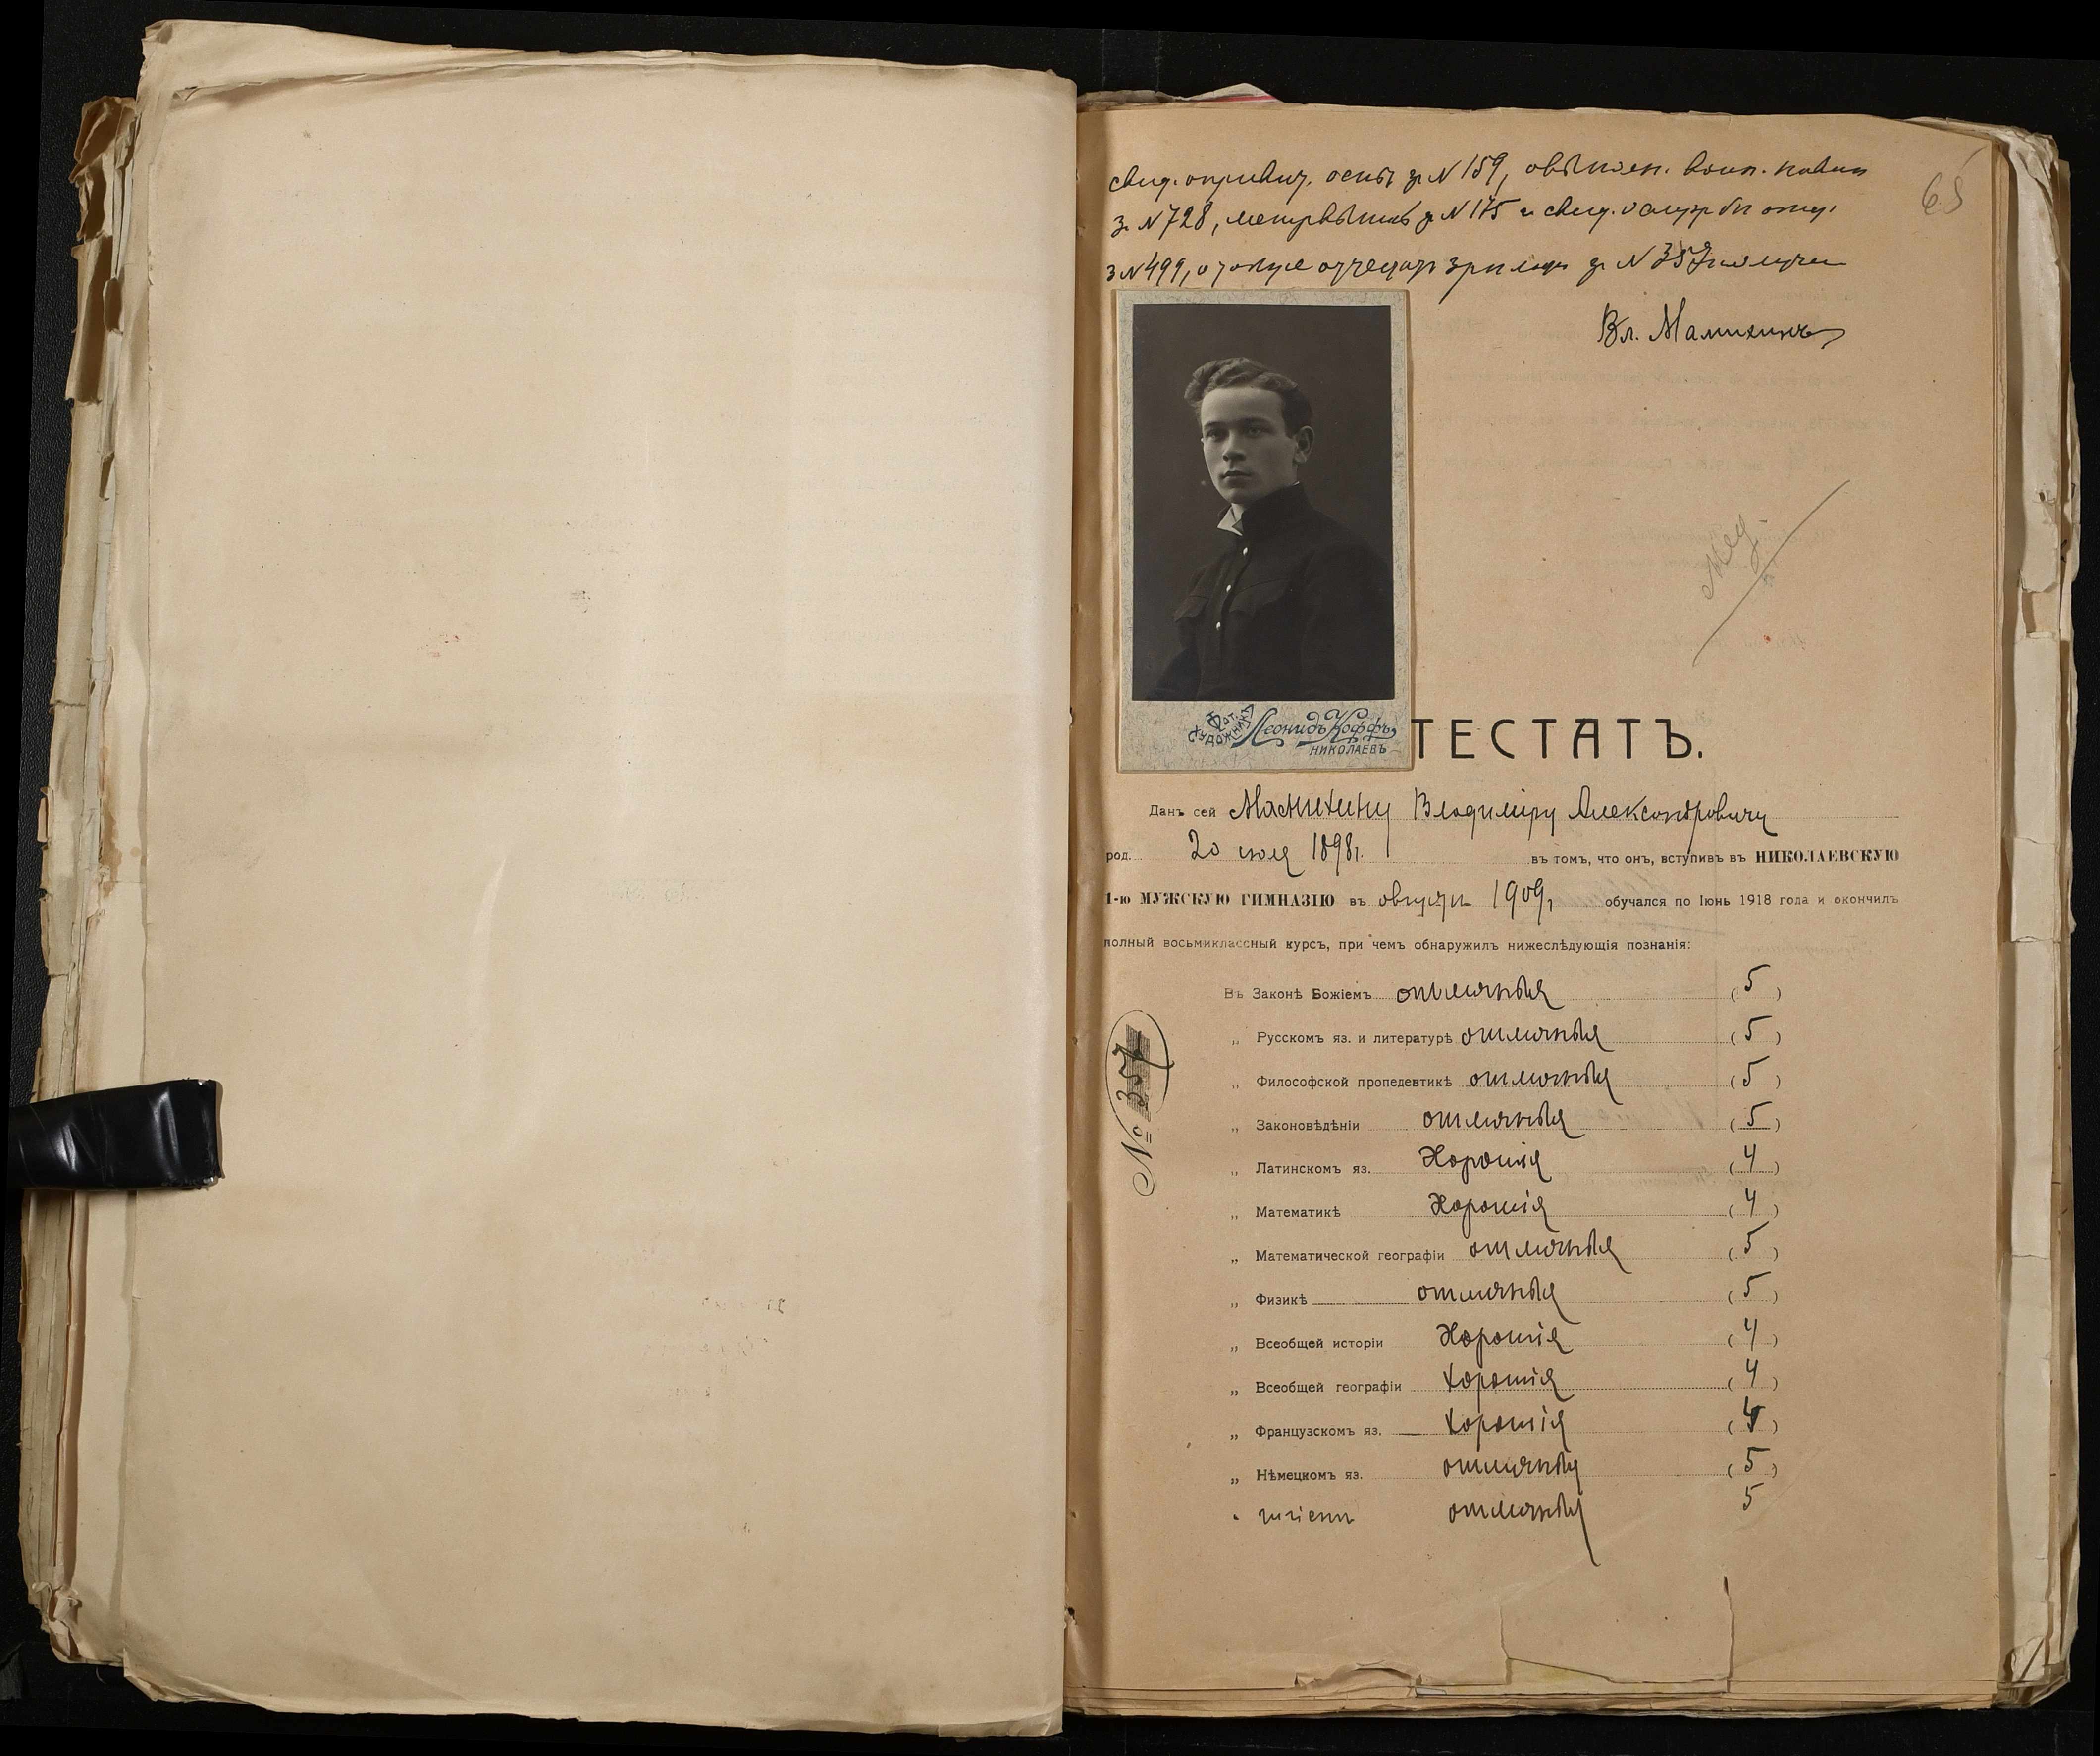 свид. о привич. оспы за N 159, о воин. повин
за N 728, метр за N 175 и свид.
за N 499, за N 357 получил
Вл. Манихинъ
65
Мед.
Фот. художника Леонидъ Коффъ
НИКОЛАЕВЪ
ТЕСТАТЪ.
Данъ сей Манихину Владиміру Александровичу
род. 20 іюля 1898 г. въ томъ, что онъ, вступивъ въ НИКОЛАЕВСКУЮ
1-ю МУЖСКУЮ ГИМНАЗІЮ въ августѣ 1909 г. обучался по Іюнь 1918 года и окончилъ
полный восьмиклассный курсъ, при чемъ обнаружилъ нижеслѣдующія познанія:
Въ Законѣ Божіемъ отличныя (5)
„ Русскомъ яз. и литературѣ отличныя (5)
„ Философской пропедевтикѣ отличныя (5)
„ Законовѣдѣніи отличныя (5)
„ Латинскомъ яз. Хорошія (4)
„ Математикѣ Хорошія (4)
„ Математической географіи отличныя (5)
„ Физикѣ отличныя (5)
„ Всеобщей исторіи Хорошія (4)
„ Всеобщей географіи Хорошія (4)
„ Французскомъ яз. Хорошія (4)
„ Нѣмецкомъ яз. отличныя (5)
„ гигіенѣ отличныя 5
№ 357